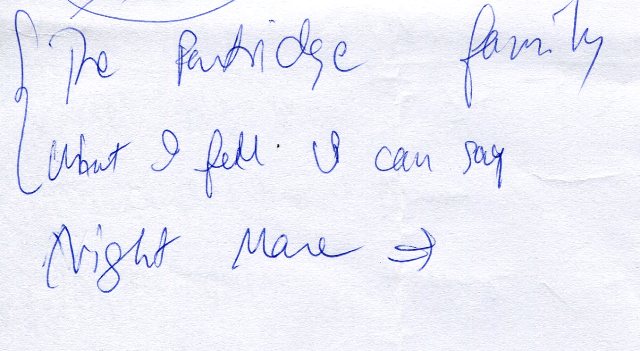 The Partridge family
What I fell. I can say
Night Mare ⇒